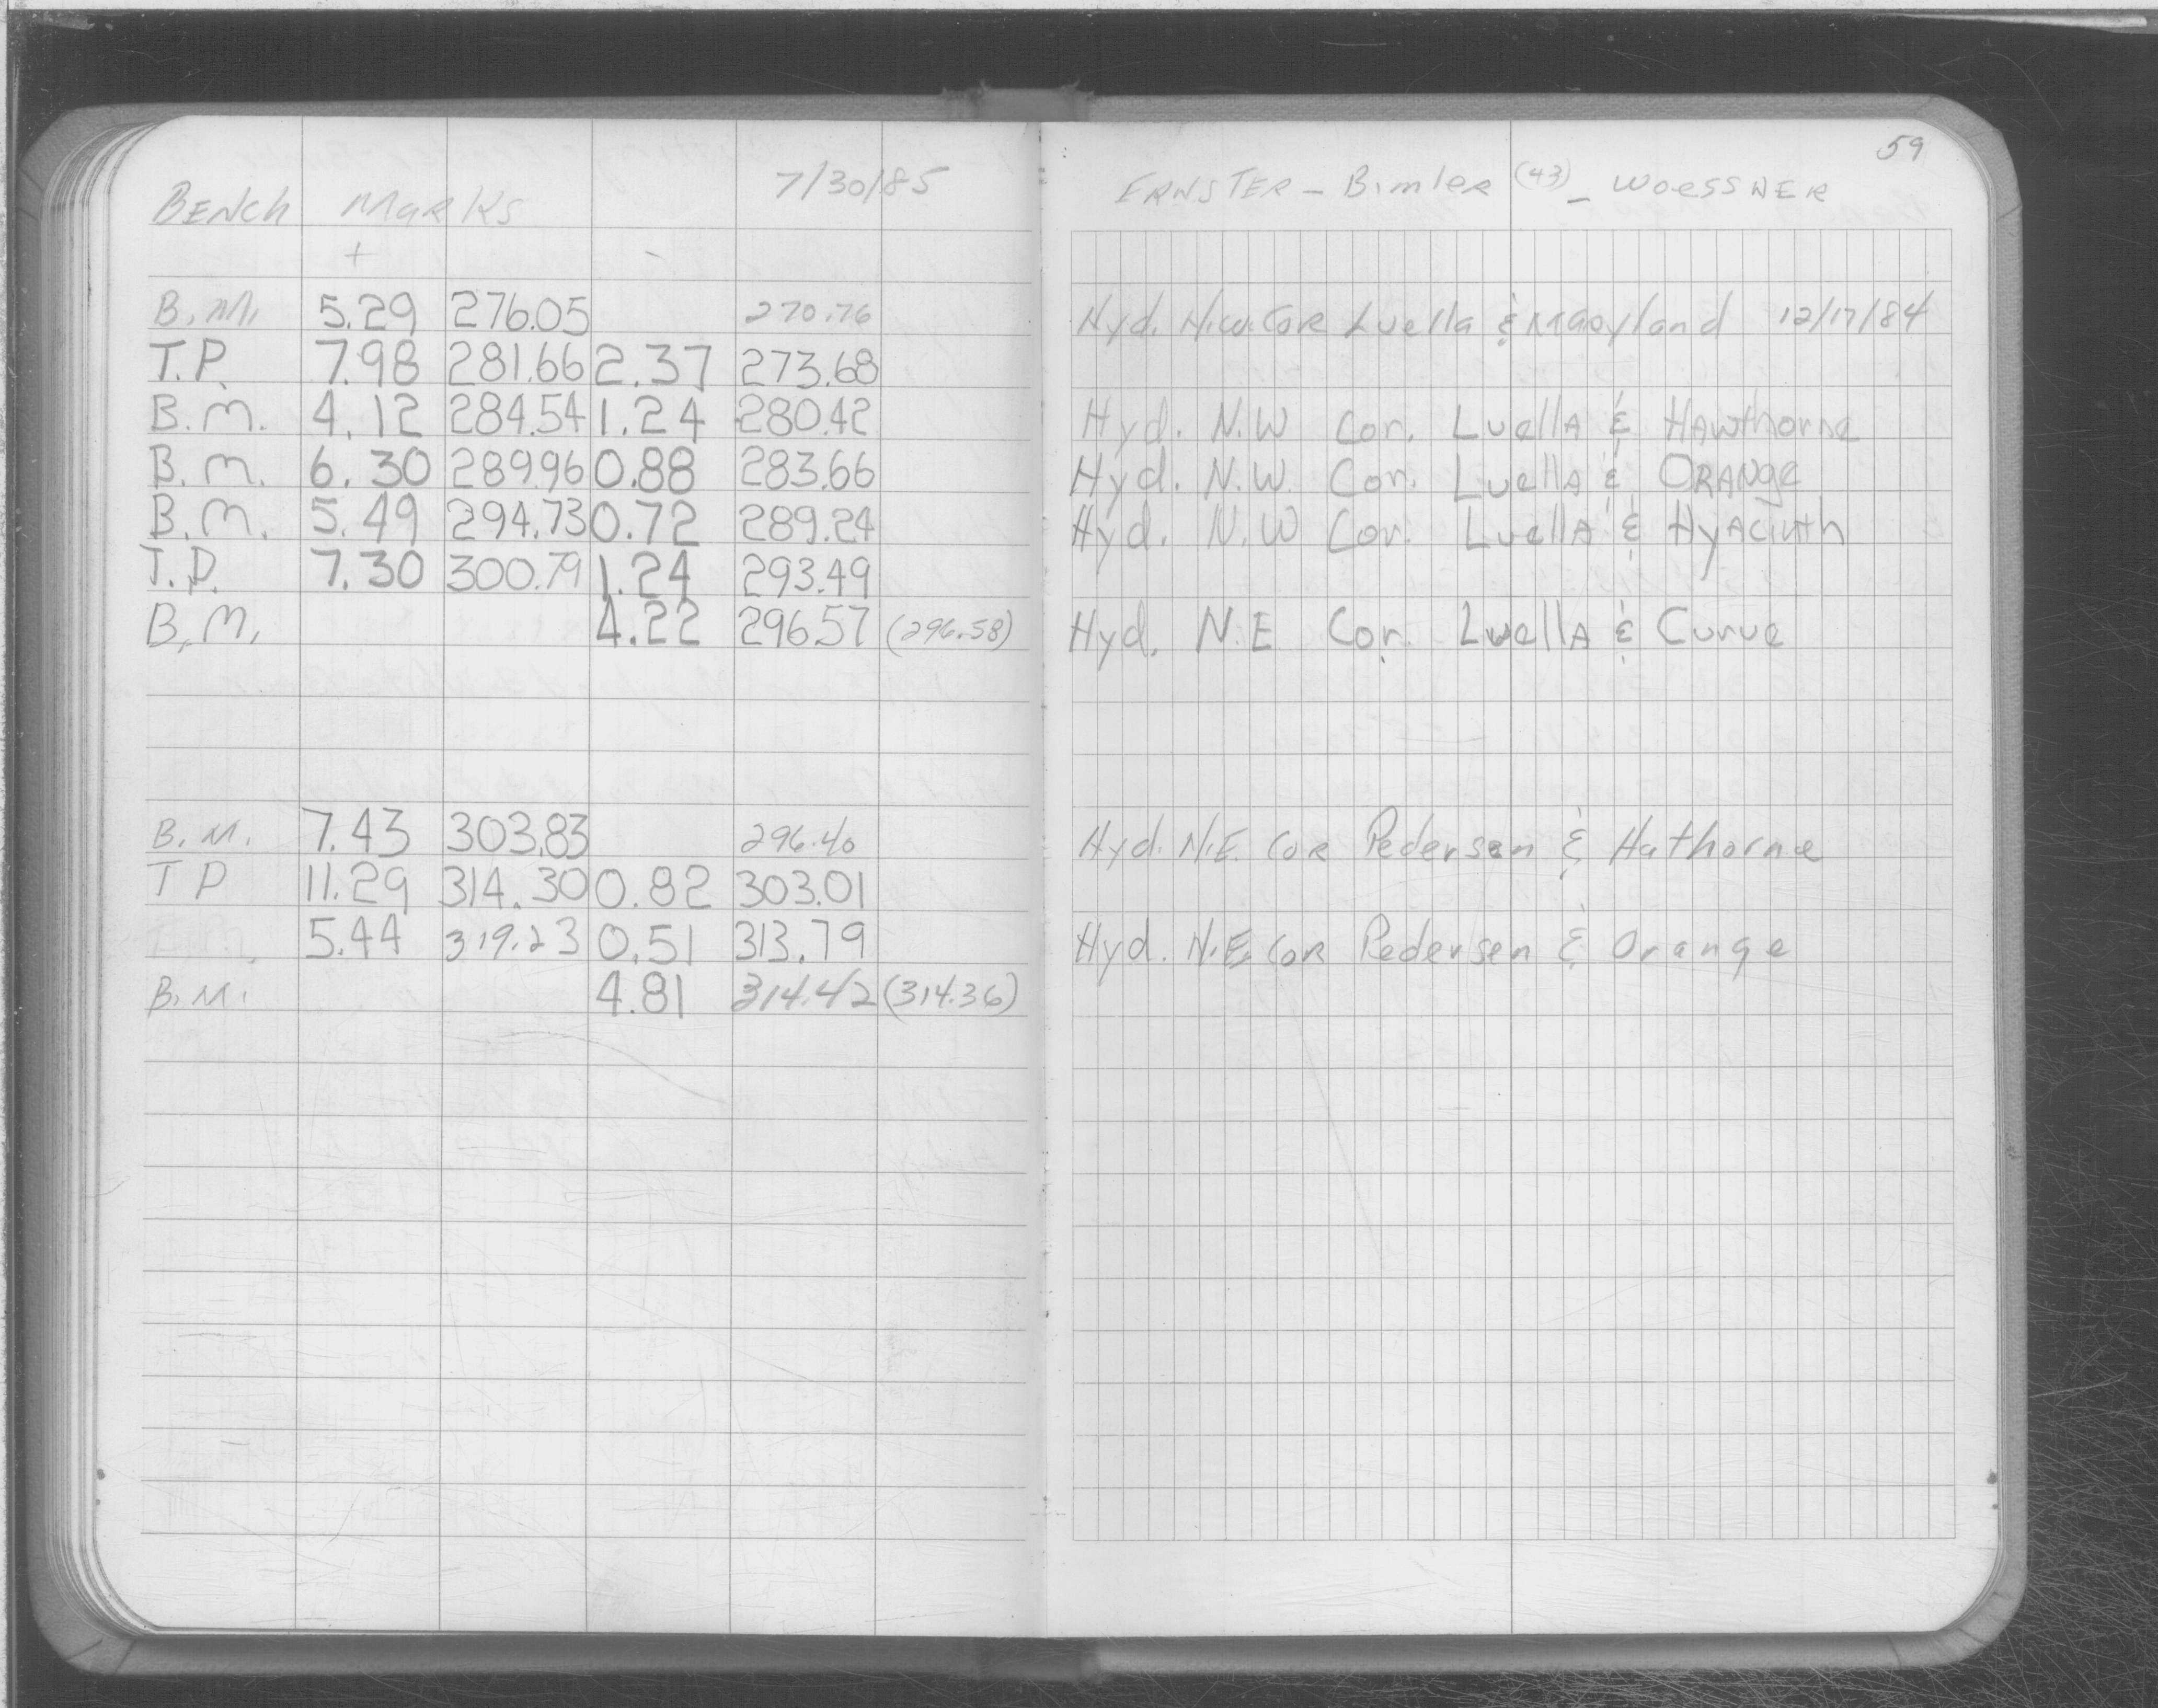 59
7/30/85 ERNSTER - Bimler (43) - WOESSNER
BENCH MARKS
+ -
B.M. 5.29 276.05 270.76 Hyd. N.W. COR Luella & Maryland 12/17/84
T.P. 7.98 281.66 2.37 273.68
B.M. 4.12 284.54 1.24 280.42 Hyd. N.W Cor. LuellA & HAwthorne
B.M. 6.30 289.96 0.88 283.66 Hyd. N.W. Cor. LuellA & ORANge
B.M. 5.49 294.73 0.72 289.24 Hyd. N.W Cor. LuellA & HyAcinth
T.P. 7.30 300.79 1.24 293.49
B.M. 4.22 296.57 (296.58) Hyd. N.E Cor. LuellA & Curve
B.M. 7.43 303.83 296.40 Hyd. N.E. COR Pedersen & Hathorne
T P 11.29 314.30 0.82 303.01
5.44 319.23 0.51 313.79 Hyd. N.E. COR Pedersen & Orange
B.M. 4.81 314.42 (314.36)